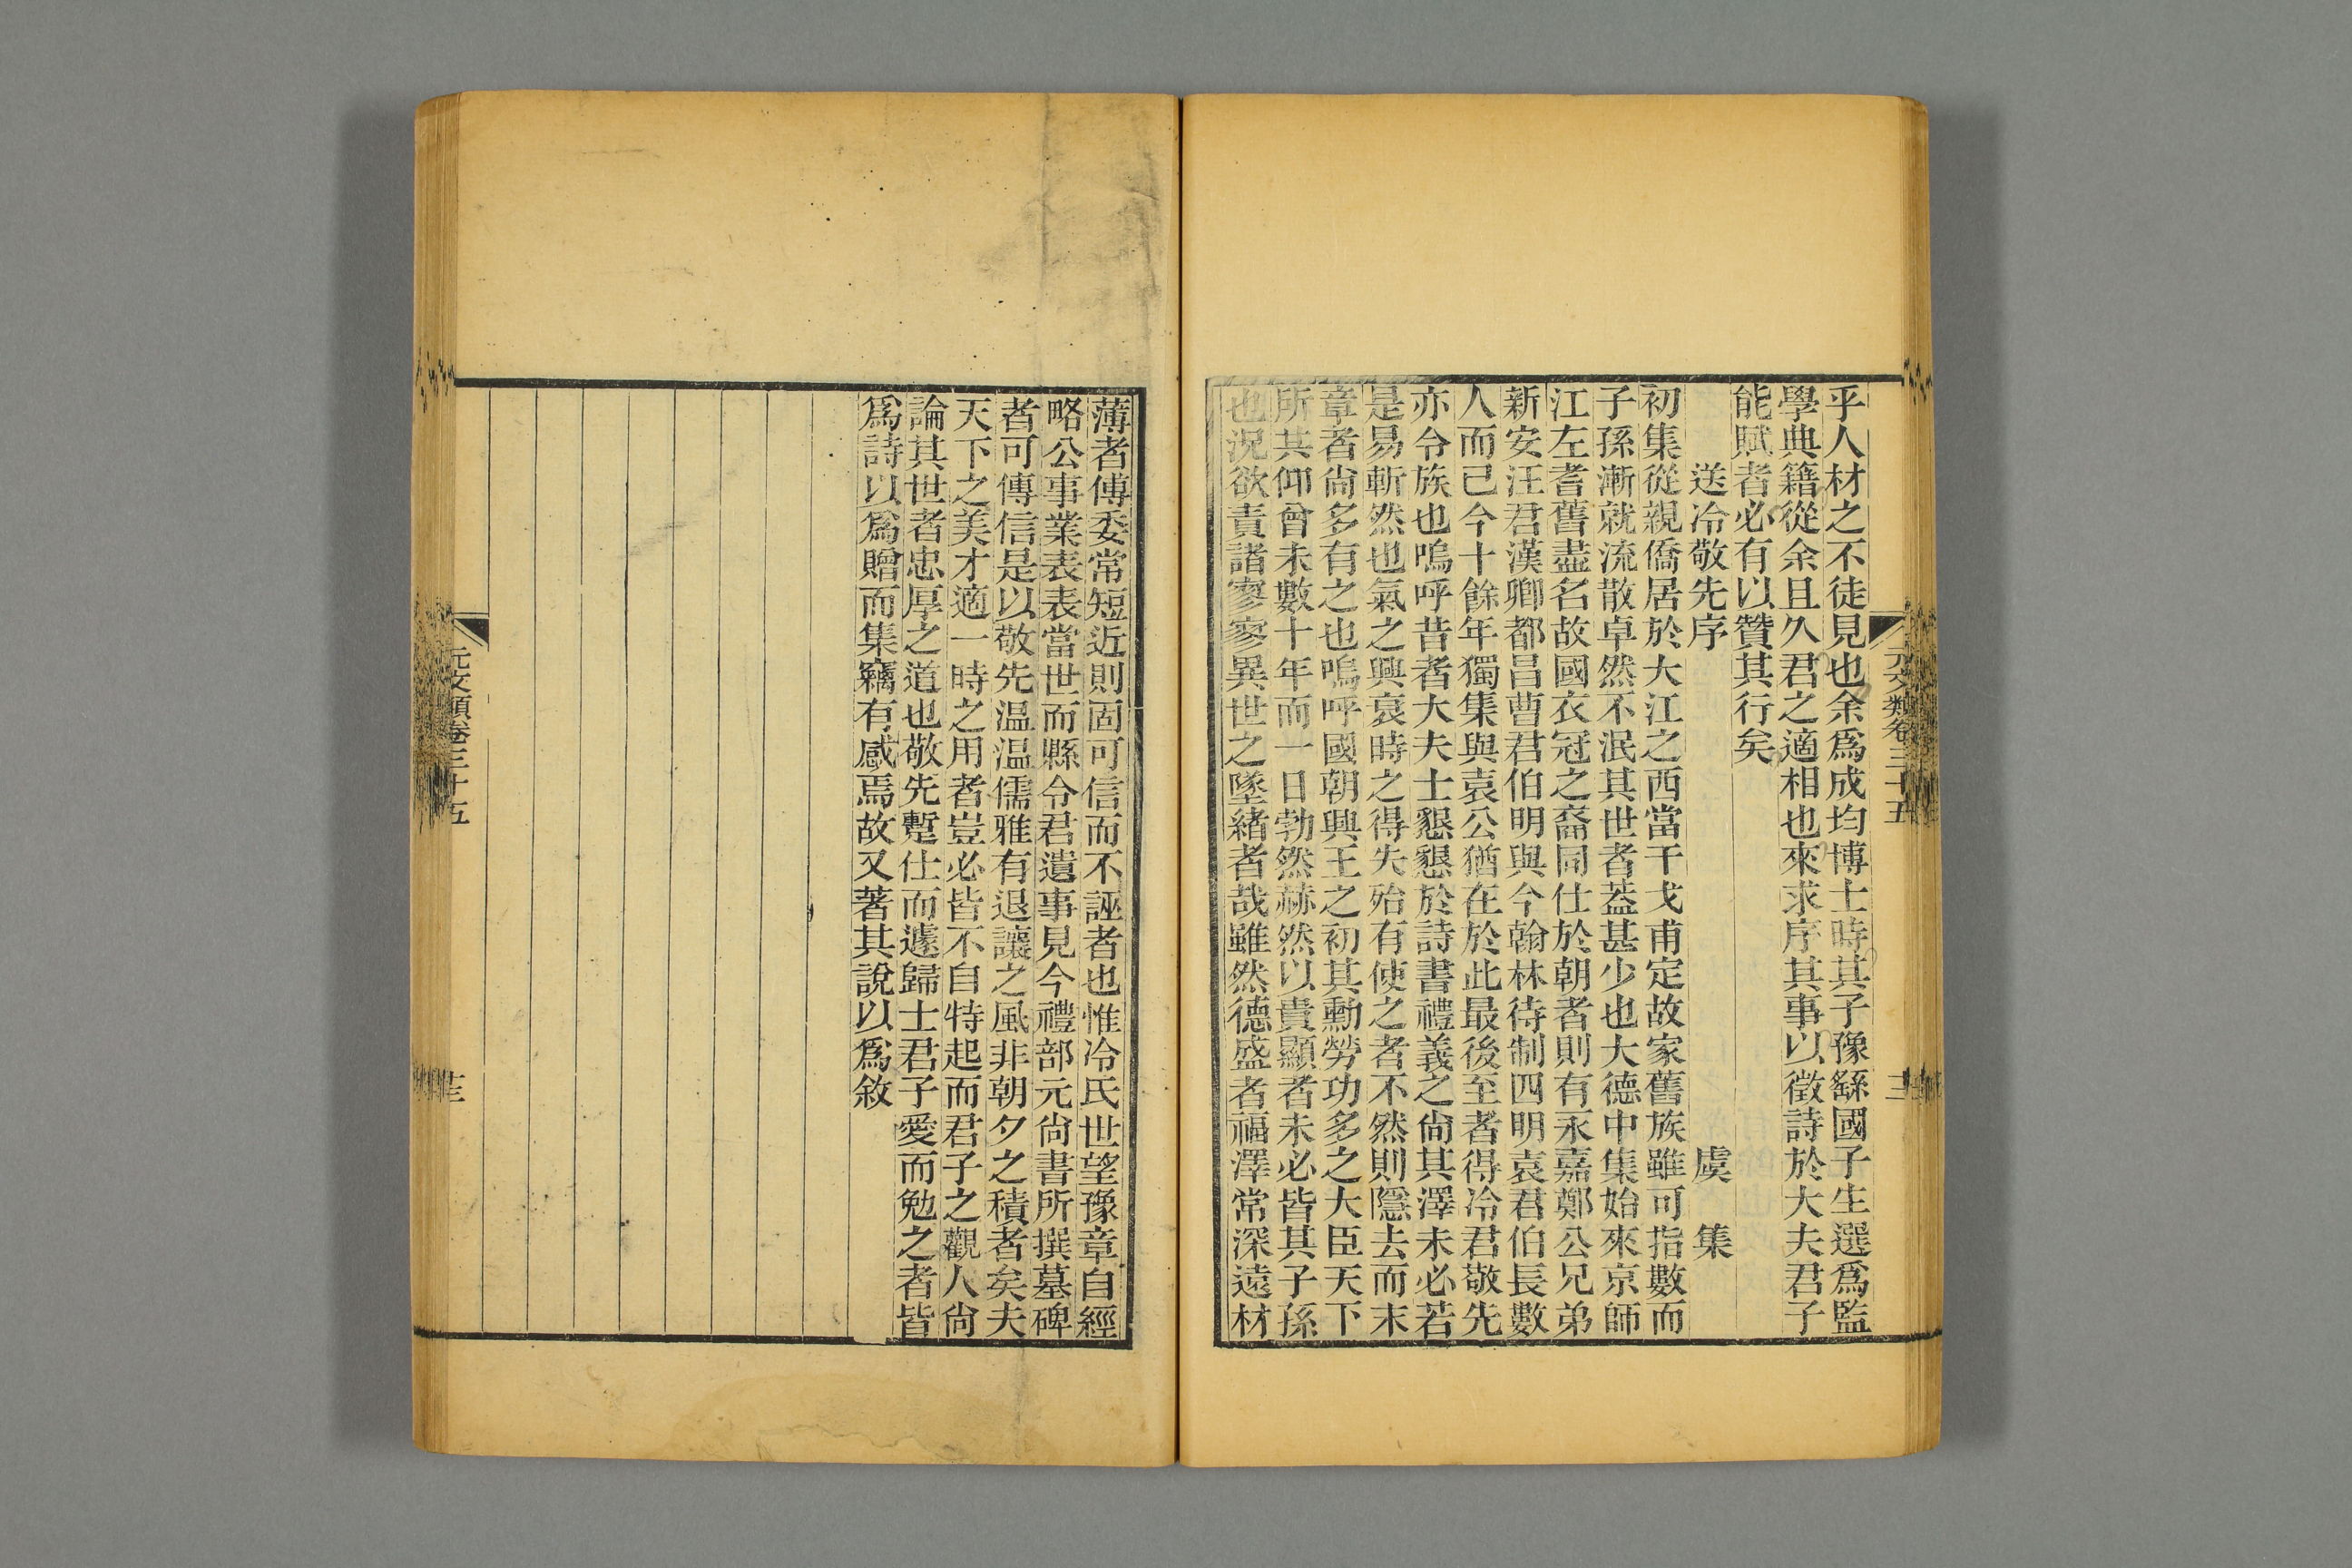 乎人材之不徒見也余爲成均博士時其子豫繇國子生選爲監
學典籍從余且久君之適相也來求序其事以徵詩於大夫君子
能賦者必有以贊其行矣
送冷敬先序 虞集
初集從親僑居於大江之西當干戈甫定故家舊族雖可指數而
子孫漸就流散卓然不泯其世者葢甚少也大德中集始來京師
江左耆舊盡名故國衣冠之裔同仕於朝者則有永嘉鄭公兄弟
新安汪君漢卿都昌曹君伯明與今翰林待制四明袁君伯長數
人而已今十餘年獨集與袁公猶在於此最後至者得冷君敬先
亦令族也嗚呼昔者大夫士懇懇於詩書禮義之尙其澤未必若
是易斬然也氣之興衰時之得失殆有使之者不然則隱去而末
章者尙多有之也嗚呼國朝興王之初其勳勞功多之大臣天下
所其仰曾未數十年而一日勃然赫然以貴顯者未必皆其子孫
也況欲責諸寥寥異世之墜緒者哉雖然德盛者福澤常深遠材
元文類卷三十五
薄者傳委常短近則固可信而不誣者也惟冷氏世望豫章自經
略公事業表表當世而縣令君遺事見今禮部元尙書所撰墓碑
者可傳信是以敬先温温儒雅有退讓之風非朝夕之積者矣夫
天下之美才適一時之用者豈必皆不自特起而君子之觀人尙
論其世者忠厚之道也敬先蹔仕而遽歸士君子愛而勉之者皆
爲詩以爲贈而集竊有感焉故又著其說以爲敘
元文類卷三十五